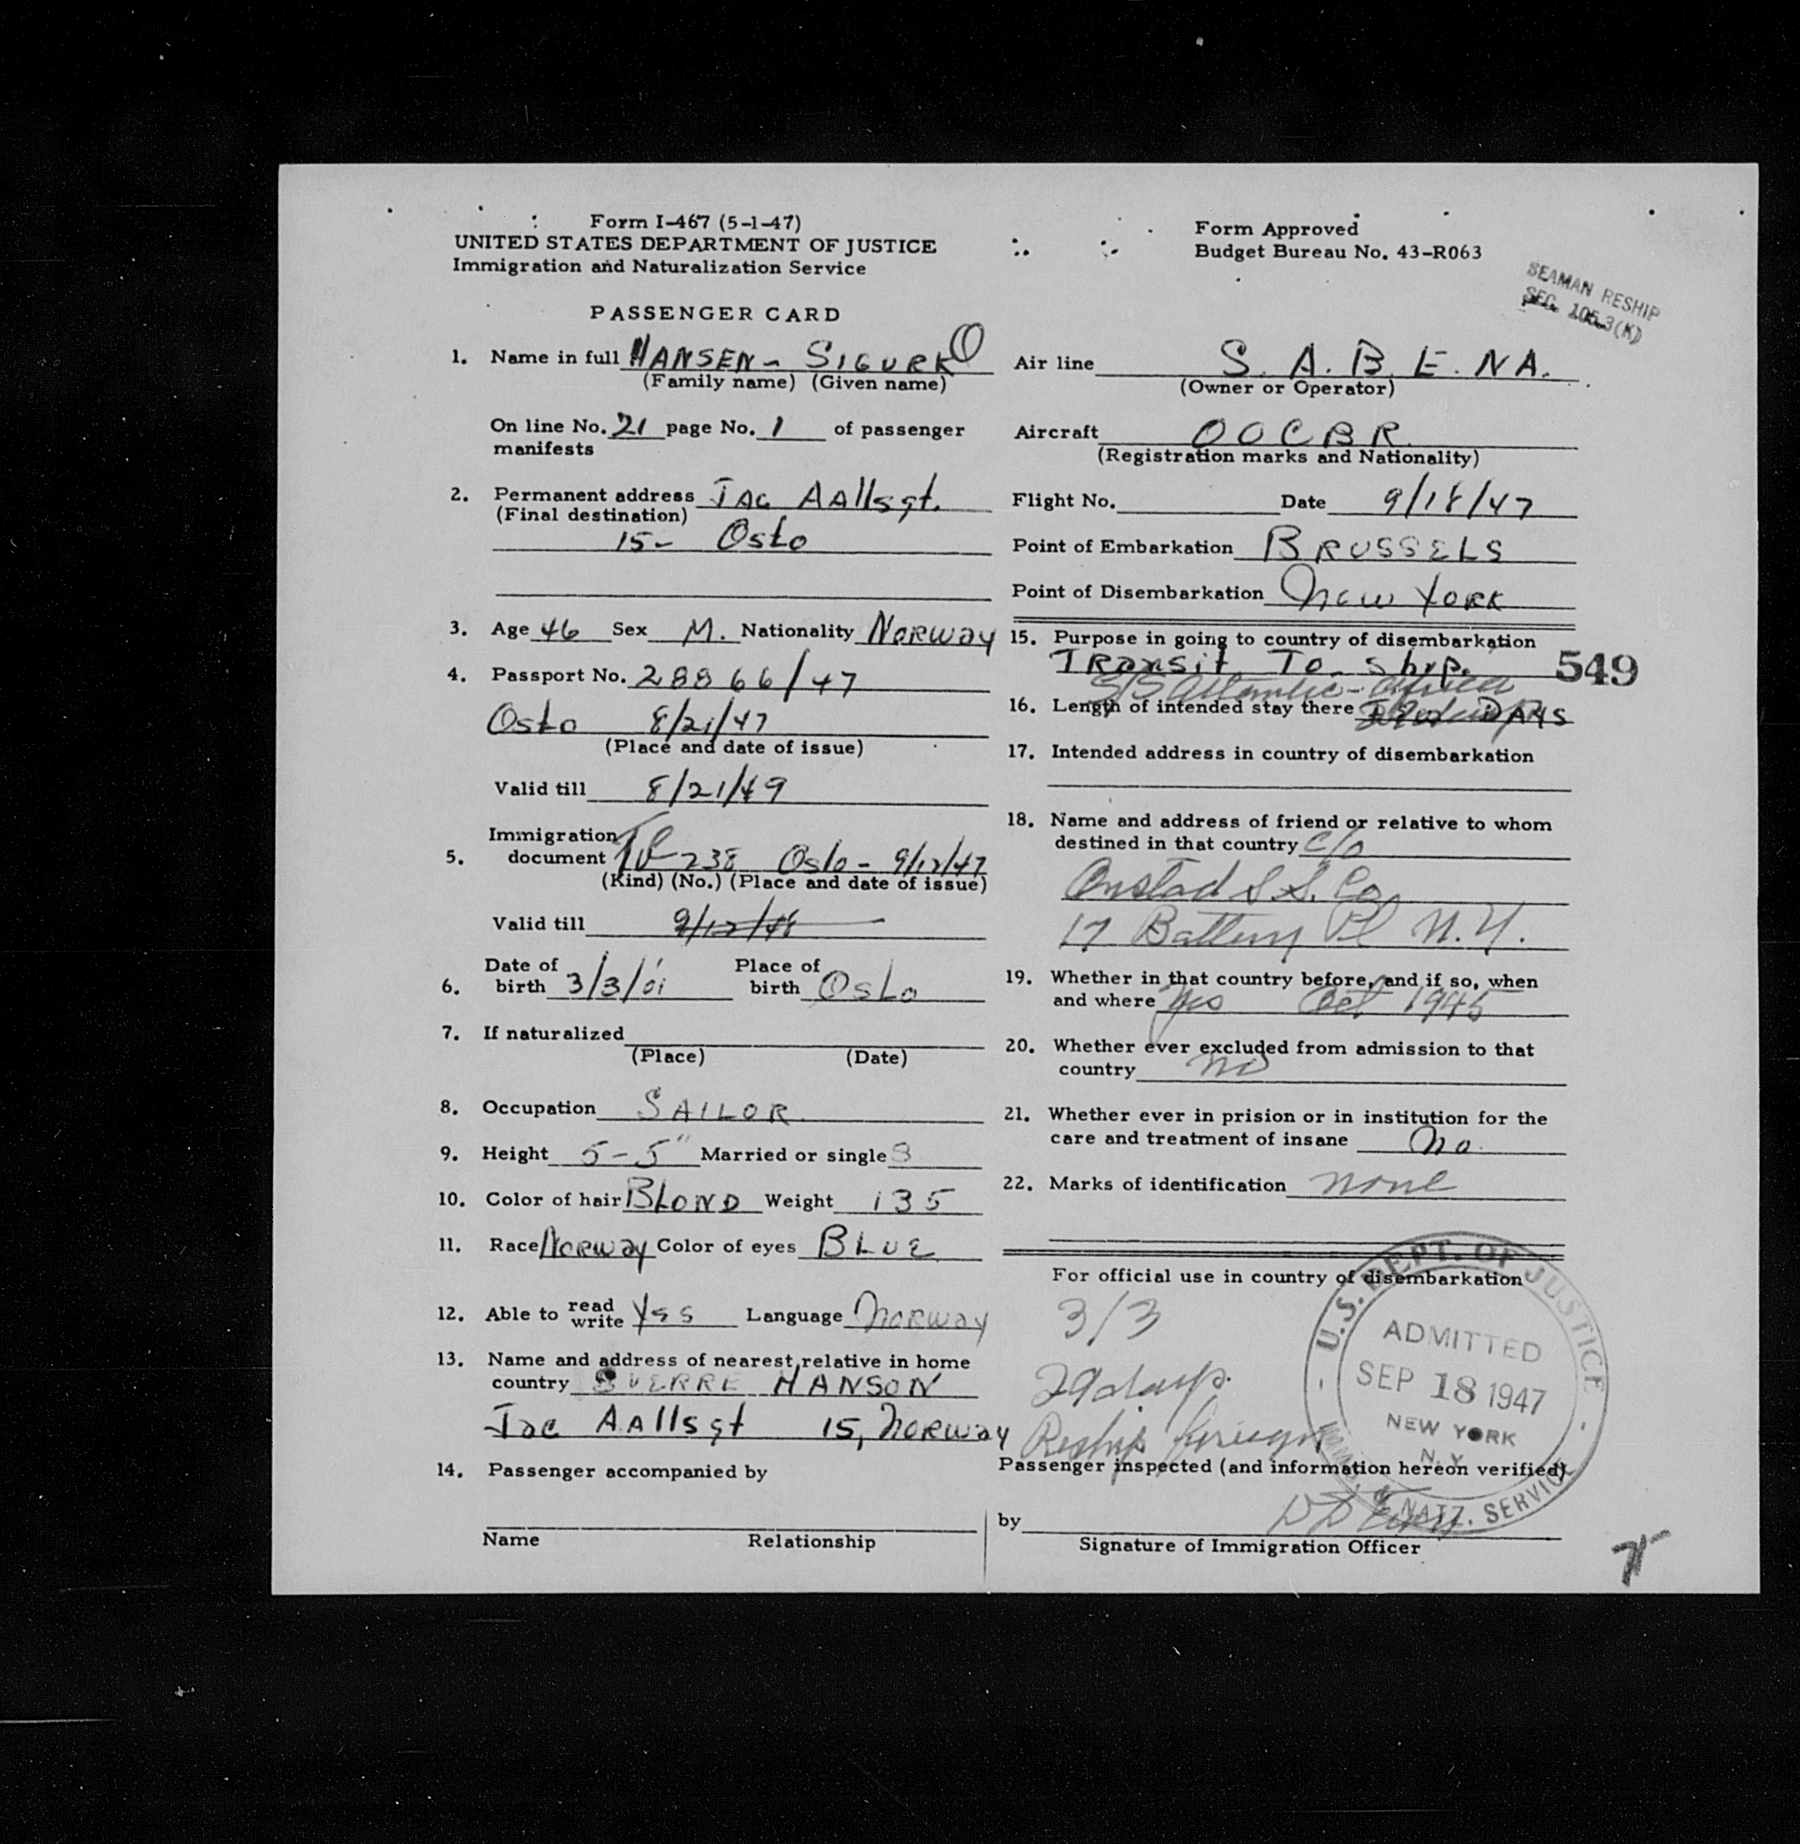 Form I-467 (5-1-47)
UNITED STATES DEPARTMENT OF JUSTICE
Immigration and Naturalization Service
PASSENGER CARD
1. Name in full HANSEN - SIGURK O
(Family name) (Given name)
On line No. 21 page No. 1 of passenger
manifests
2. Permanent address Jac Aallsgt.
(Final destination)
15- Oslo
3. Age 46 Sex M. Nationality NORWAY
4. Passport No. 28866/47
Oslo 8/21/47
(Place and date of issue)
Valid till 8/21/49
Immigration
5. document 238 Oslo - 9/12/47
(Kind) (No.) (Place and date of issue)
Valid till 9/12/48
Date of Place of
6. birth 3/3/'01 birth Oslo
7. If naturalized
(Place) (Date)
8. Occupation SAILOR
9. Height 5-5" Married or single S
10. Color of hair BLOND Weight 135
11. Race NORWAY Color of eyes BLUE
12. Able to read write Yes Language NORWAY
13. Name and address of nearest relative in home
country SVERRE HANSON
Jac Aallsgt 15, NORWAY
14. Passenger accompanied by
Name Relationship
Form Approved
Budget Bureau No. 43-R063
SEAMAN RESHIP
SEC. 105.3(K)
Air line S.A.B.E.NA.
(Owner or Operator)
Aircraft OOCBR
(Registration marks and Nationality)
Flight No. Date 9/18/47
Point of Embarkation BRUSSELS
Point of Disembarkation New York
15. Purpose in going to country of disembarkation
Transit To Ship. 549
S/S Atlantic - Africa
16. Length of intended stay there DAYS
17. Intended address in country of disembarkation
18. Name and address of friend or relative to whom
destined in that country c/o
Onstad S.S. Co
17 Battery Pl N.Y.
19. Whether in that country before, and if so, when
and where Yes Oct 1945
20. Whether ever excluded from admission to that
country no
21. Whether ever in prision or in institution for the
care and treatment of insane no.
22. Marks of identification none
For official use in country of disembarkation
3/3
29 days.
Reship foreign
U.S. DEPT. OF JUSTICE
ADMITTED
SEP 18 1947
NEW YORK
N.Y.
& NATZ. SERVICE
Passenger inspected (and information hereon verified)
by
Signature of Immigration Officer